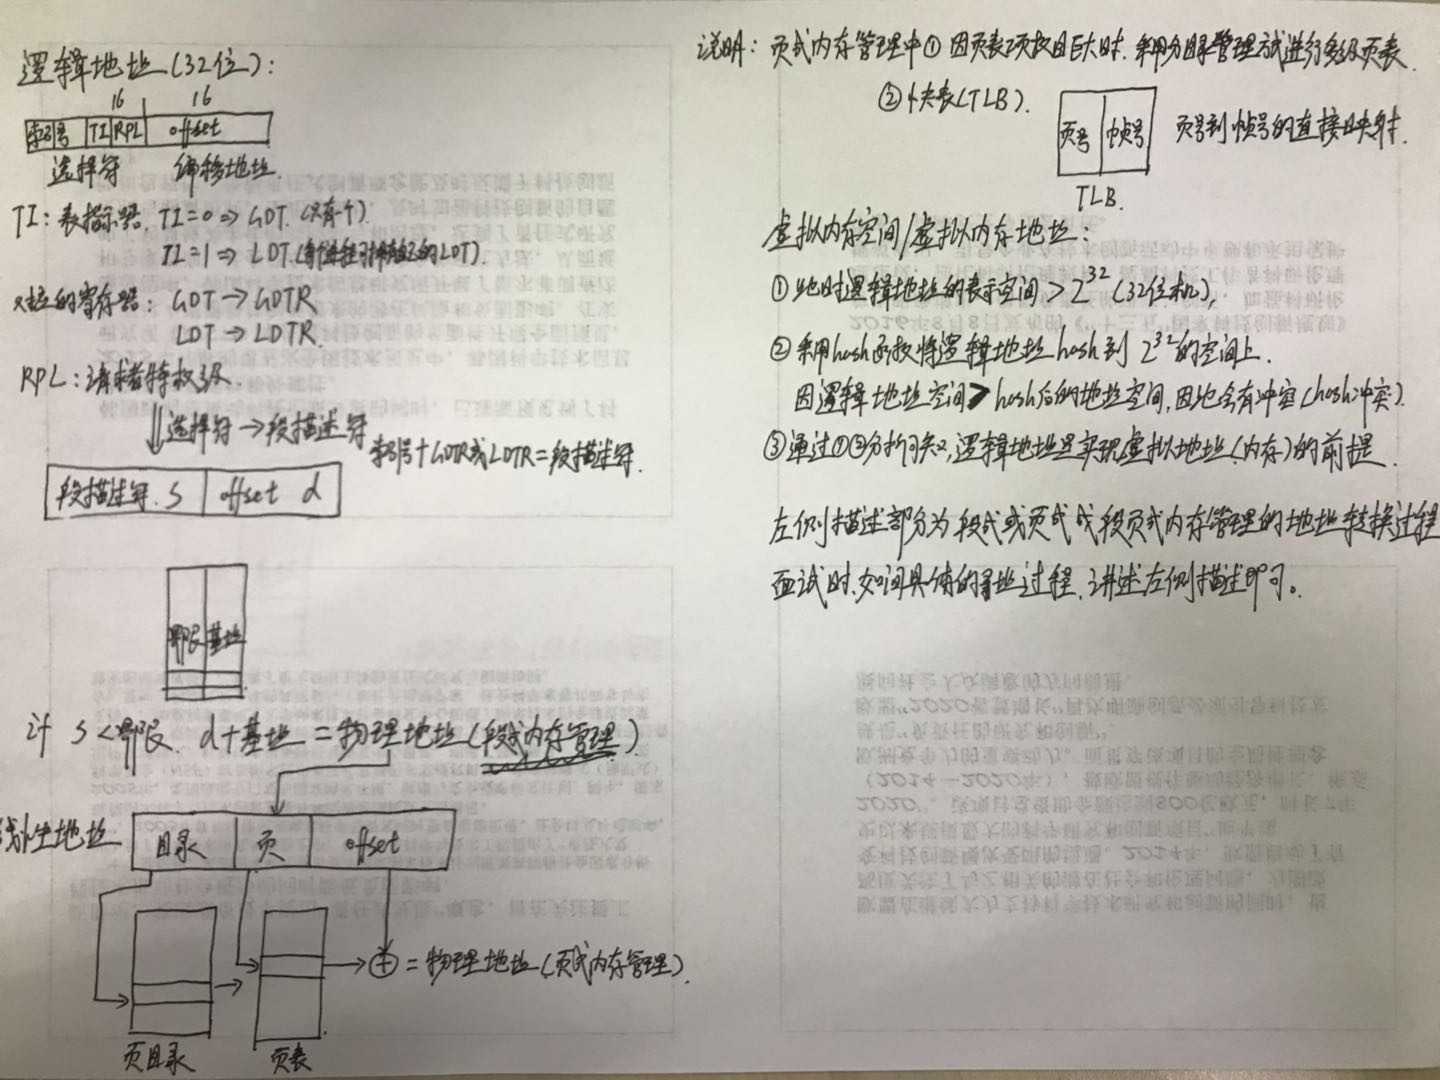 逻辑地址(32位):
16 16
索引号 TI RPL offset
选择符 偏移地址.
TI: 表指示器. TI=0 => GDT. (只有一个)
TI=1 => LDT. (每个进程可拥有自己的LDT).
对应的寄存器: GDT → GDTR
LDT → LDTR.
RPL: 请求者特权级.
选择符 → 段描述符
索引号+GDTR或LDTR=段描述符.
段描述符. S offset d
界限 基址
if S<界限. d+基址=物理地址(段式内存管理)
线性地址 目录 页 offset
+ = 物理地址(页式内存管理).
页目录 页表
说明: 页式内存管理中① 因页表项数目巨大时. 采用分目录管理方式进行多级页表.
②快表(TLB).
页号 帧号 页号到帧号的直接映射.
TLB.
虚拟内存空间/虚拟内存地址:
①此时逻辑地址的表示空间 > 2^32 (32位机),
②采用hash函数将逻辑地址hash到 2^32的空间上.
因逻辑地址空间>hash后的地址空间, 因此会有冲突(hash冲突).
③通过①②分析可知, 逻辑地址是实现虚拟地址(内存)的前提.
左侧描述部分为段式或页式或段页式内存管理的地址转换过程
面试时. 如问具体的寻址过程, 讲述左侧描述即可。